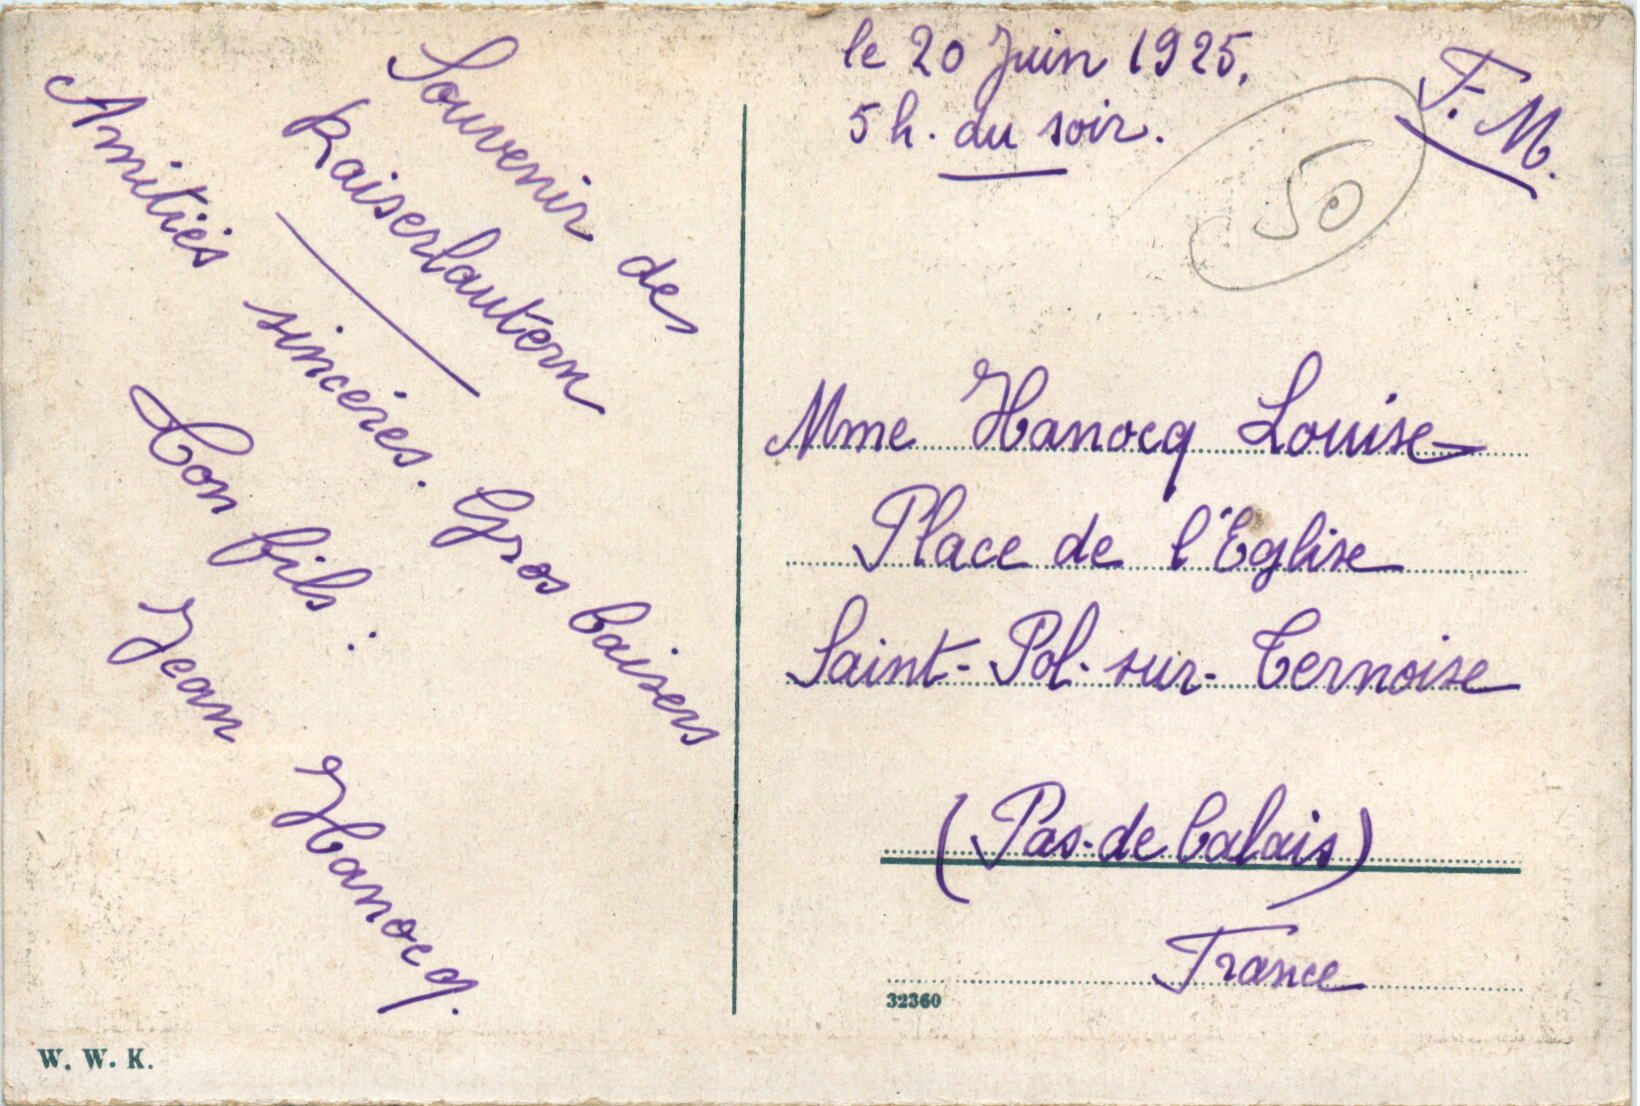 Souvenir de
Kaiserlautern
Amitiés sincères. Gros baisers
Ton fils :
Jean Hanocq.
W. W. K.
le 20 Juin 1925.
5 h. du soir.
F. M.
50
Mme Hanocq Louise
Place de l'Eglise
Saint-Pol-sur-Ternoise
(Pas-de Calais)
France
32360